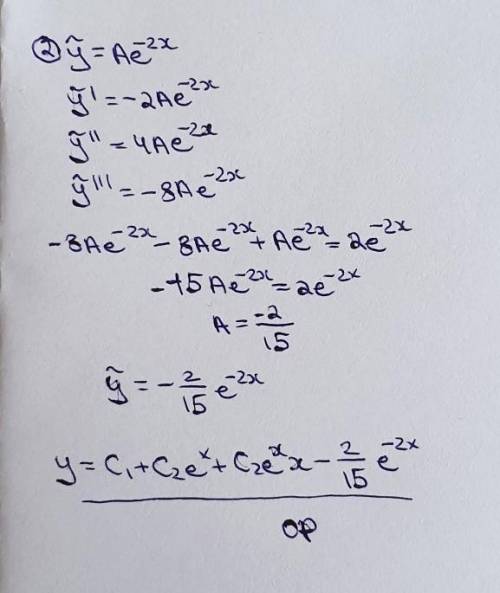 ② ỹ = Ae^-2x
ỹ' = -2Ae^-2x
ỹ'' = 4Ae^-2x
ỹ''' = -8Ae^-2x
-8Ae^-2x - 8Ae^-2x + Ae^-2x = 2e^-2x
-15Ae^-2x = 2e^-2x
A = -2/15
ỹ = - 2/15 e^-2x
y = C₁ + C₂e^x + C₂e^x x - 2/15 e^-2x
ор